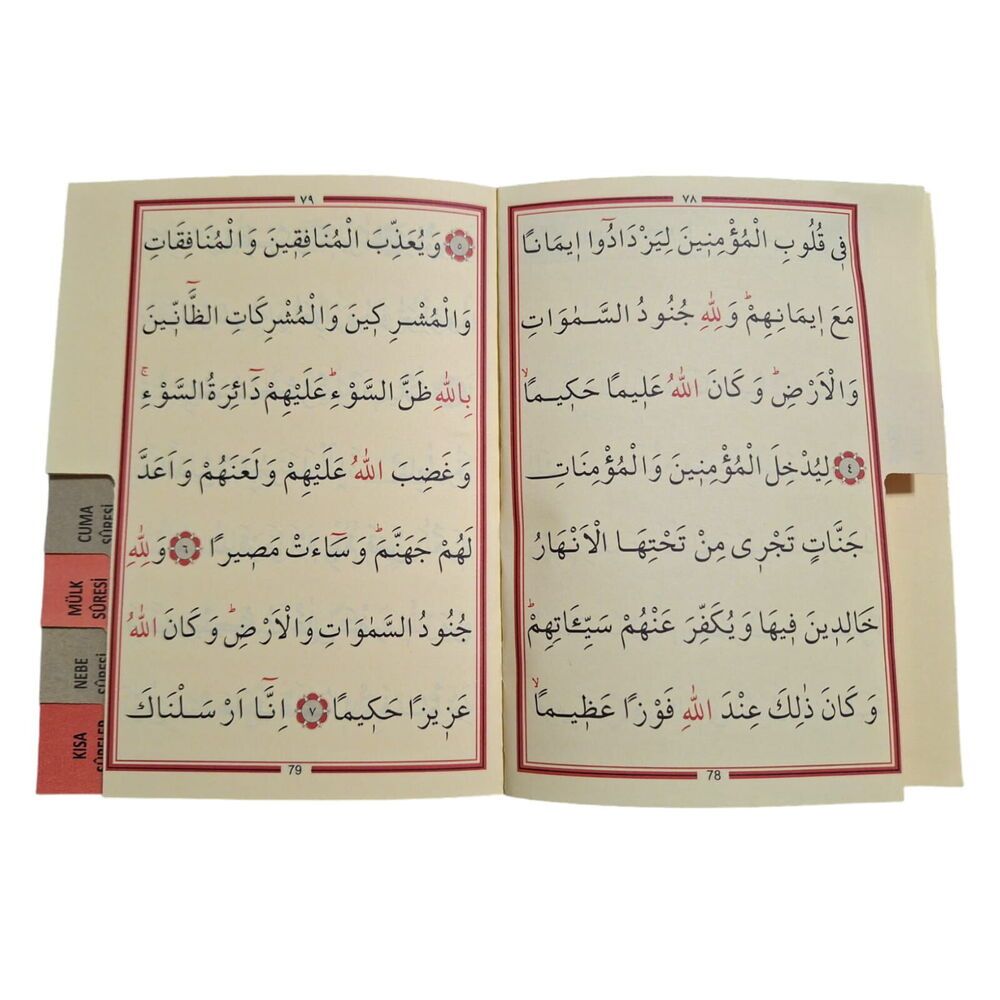 ٧٨
فٖي قُلُوبِ الْمُؤْمِنٖينَ لِيَزْدَادُٓوا اٖيمَانًا
مَعَ اٖيمَانِهِمْؕ وَلِلّٰهِ جُنُودُ السَّمٰوَاتِ
وَالْاَرْضِؕ وَكَانَ اللّٰهُ عَلٖيمًا حَكٖيمًاۙ
﴿٤﴾ لِيُدْخِلَ الْمُؤْمِنٖينَ وَالْمُؤْمِنَاتِ
جَنَّاتٍ تَجْرٖي مِنْ تَحْتِهَا الْاَنْهَارُ
خَالِدٖينَ فٖيهَا وَيُكَفِّرَ عَنْهُمْ سَيِّـَٔاتِهِمْؕ
وَكَانَ ذٰلِكَ عِنْدَ اللّٰهِ فَوْزًا عَظٖيمًاۙ
78
٧٩
﴿٥﴾ وَيُعَذِّبَ الْمُنَافِقٖينَ وَالْمُنَافِقَاتِ
وَالْمُشْرِكٖينَ وَالْمُشْرِكَاتِ الظَّٓانّٖينَ
بِاللّٰهِ ظَنَّ السَّوْءِؕ عَلَيْهِمْ دَٓائِرَةُ السَّوْءِۚ
وَغَضِبَ اللّٰهُ عَلَيْهِمْ وَلَعَنَهُمْ وَاَعَدَّ
لَهُمْ جَهَنَّمَؕ وَسَٓاءَتْ مَصٖيرًا ﴿٦﴾ وَلِلّٰهِ
جُنُودُ السَّمٰوَاتِ وَالْاَرْضِؕ وَكَانَ اللّٰهُ
عَزٖيزًا حَكٖيمًا ﴿٧﴾ اِنَّٓا اَرْسَلْنَاكَ
79
CUMA
SÛRESİ
MÜLK
SÛRESİ
NEBE
SÛRESİ
KISA
SÛRELER